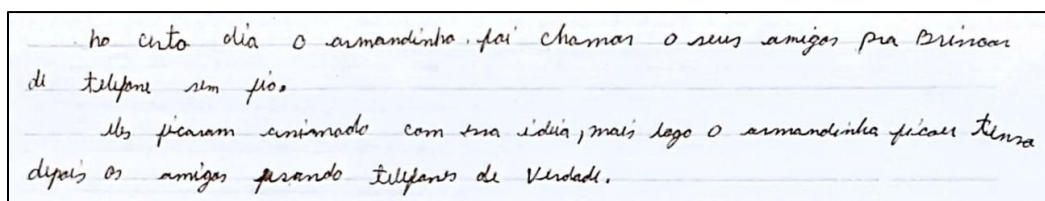 no certo dia o armandinho. foi chamar o seus amigos pra Brincar
de telefone sem fio.
eles ficaram animado com essa idéia, mais logo o armandinho ficou tenso
depois os amigos usando telefones de Verdade.